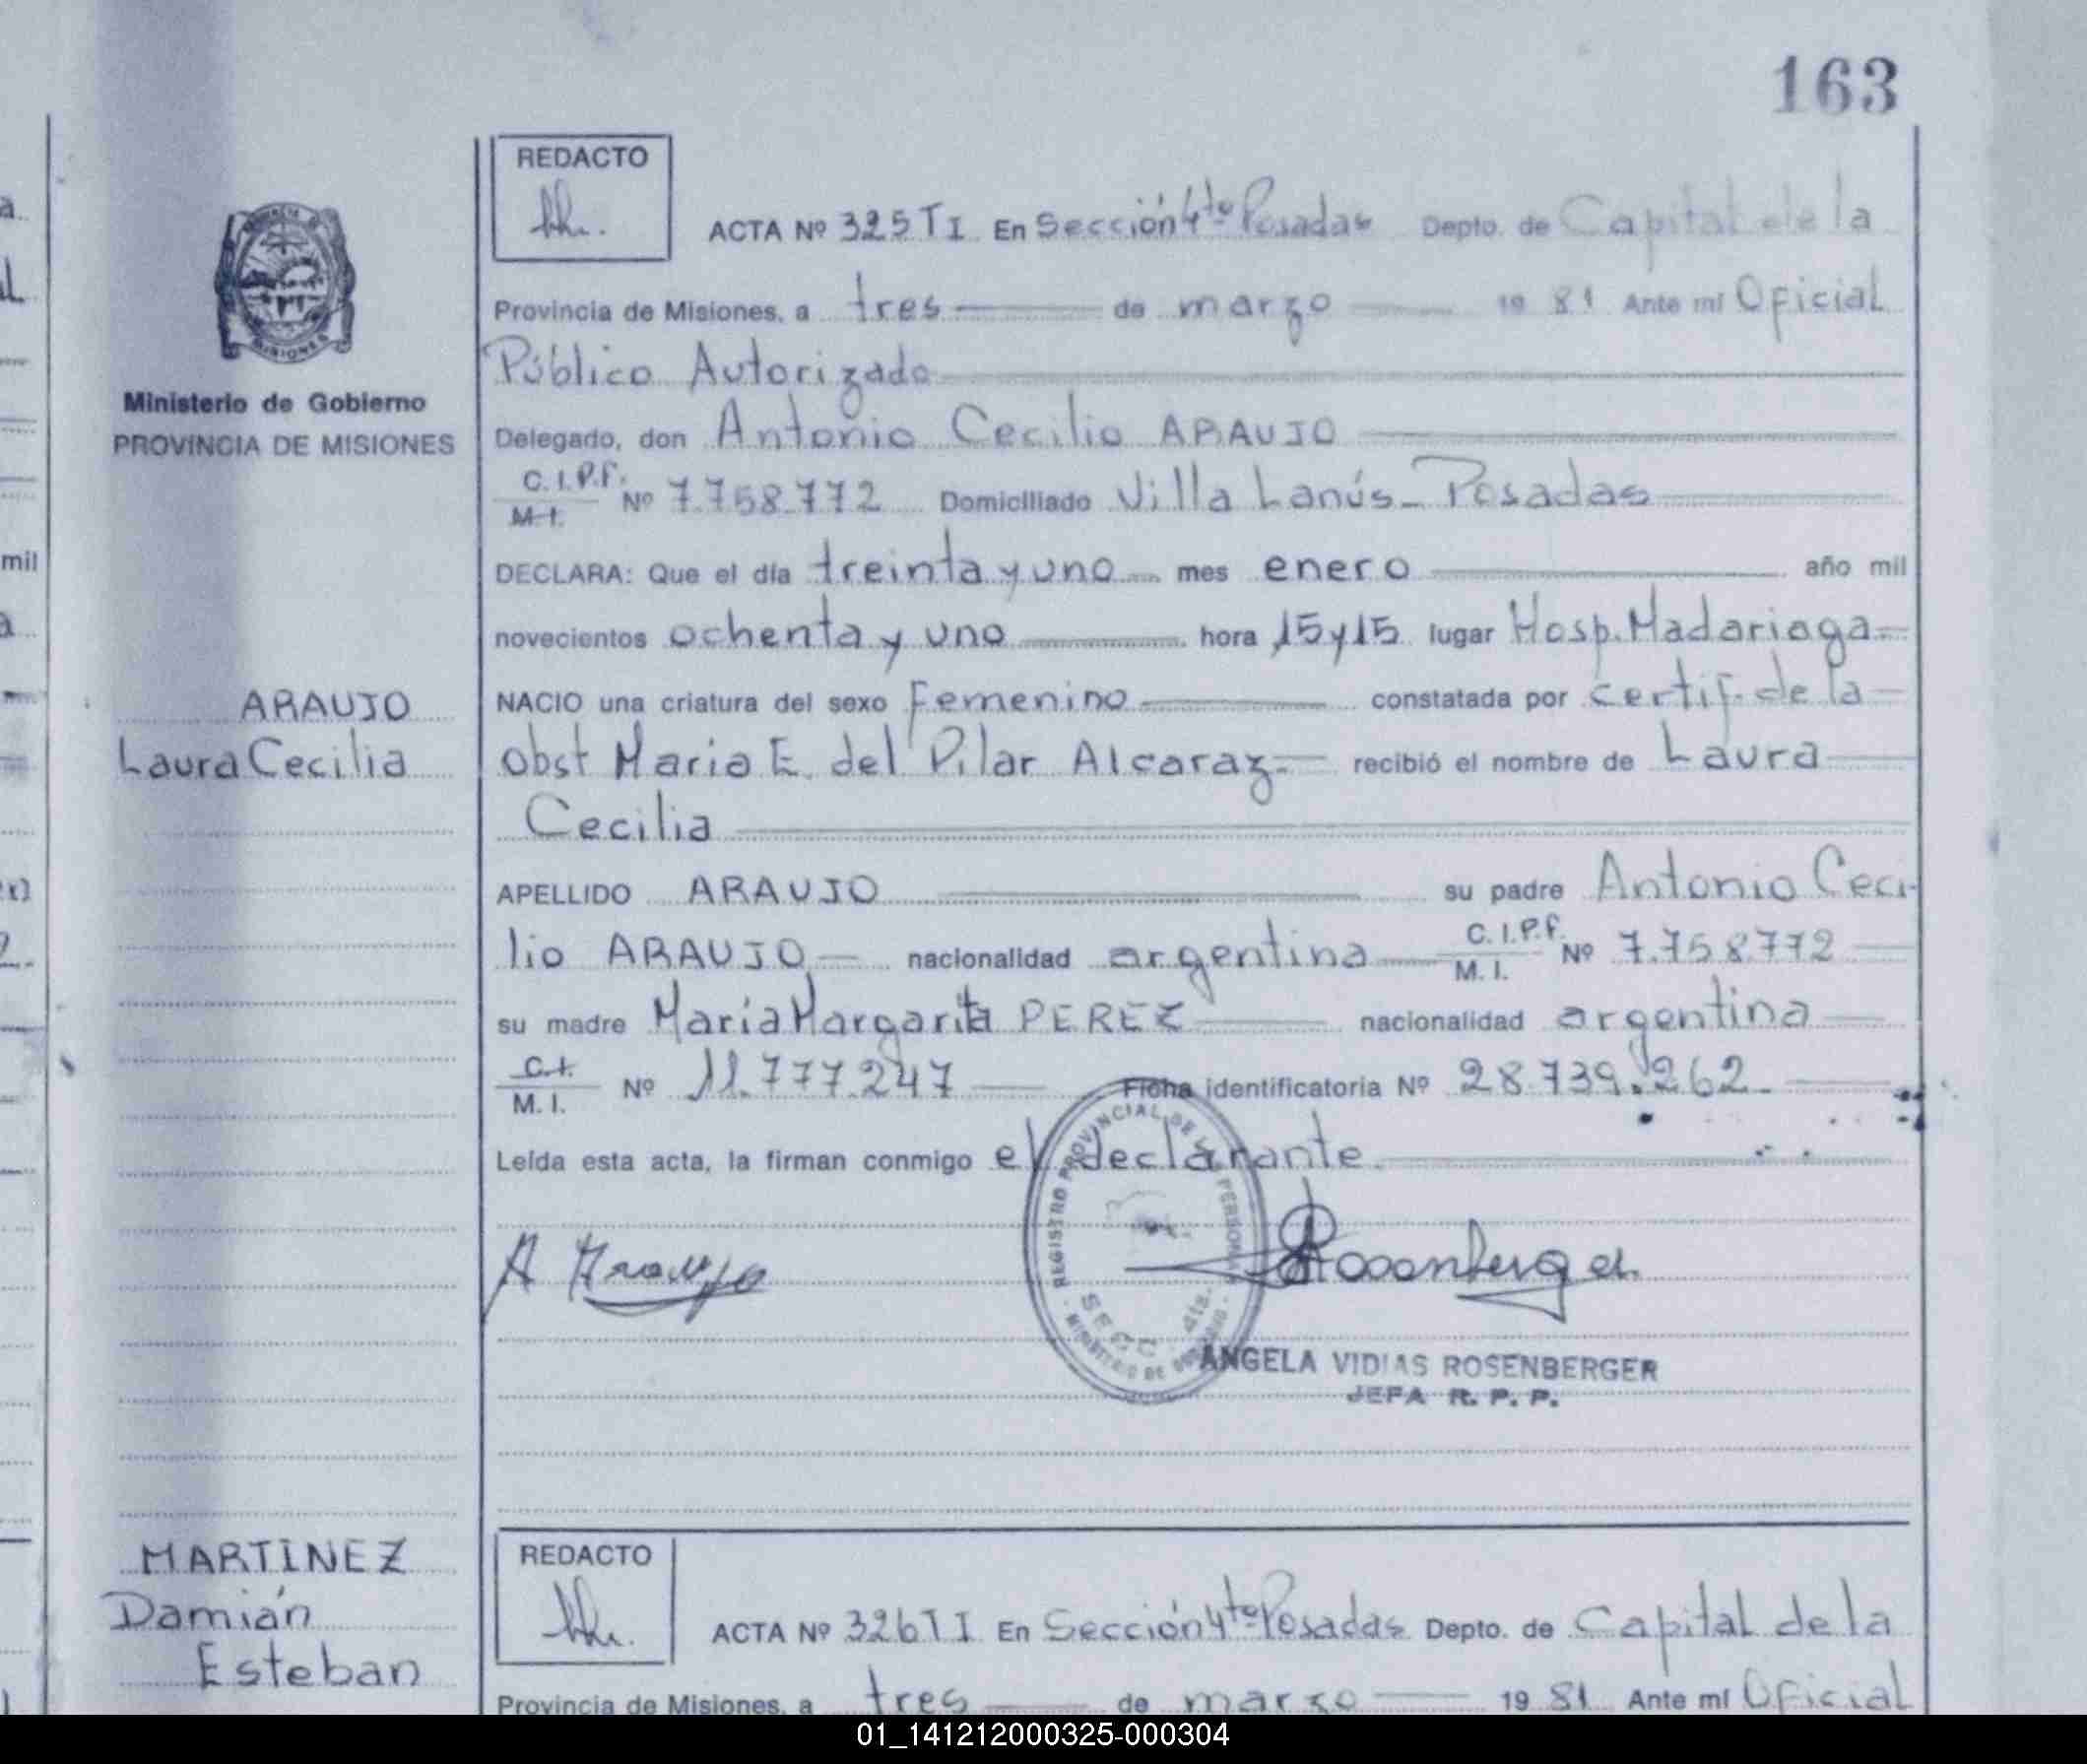 163
REDACTO
ACTA Nº 325 T I En Sección 4ta Posadas Depto. de Capital de la
Provincia de Misiones, a tres de marzo 19 81 Ante mí Oficial
Público Autorizado
Ministerio de Gobierno
PROVINCIA DE MISIONES
Delegado, don Antonio Cecilio ARAUJO
C.I.P.F. M.I. Nº 7.758.772 Domiciliado Villa Lanús - Posadas
DECLARA: Que el día treinta y uno mes enero año mil
novecientos ochenta y uno hora 15 y 15 lugar Hosp. Madariaga
ARAUJO
Laura Cecilia
NACIO una criatura del sexo Femenino constatada por certif. de la
obst Maria E. del Pilar Alcaraz recibió el nombre de Laura
Cecilia
APELLIDO ARAUJO su padre Antonio Ceci-
lio ARAUJO nacionalidad argentina C.I.P.F. M. I. Nº 7.758.772
su madre María Margarita PEREZ nacionalidad argentina
C.I. M. I. Nº 11.777.247 Ficha identificatoria Nº 28.739.262
Leída esta acta, la firman conmigo el declarante
A Araujo
Rosenberger
REGISTRO PROVINCIAL DE LAS PERSONAS
SECC. 4ta.
MINISTERIO DE GOBIERNO
ANGELA VIDIAS ROSENBERGER
JEFA R. P. P.
MARTINEZ
Damián
Esteban
REDACTO
ACTA Nº 326 T I En Sección 4ta Posadas Depto. de Capital de la
Provincia de Misiones, a tres de marzo 19 81 Ante mí Oficial
01_141212000325-000304